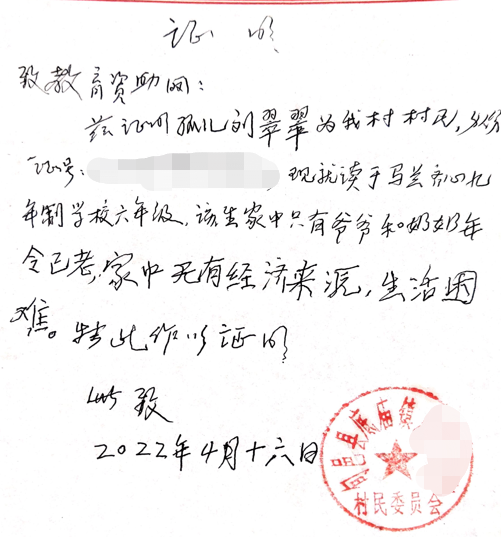 证明
致教育资助网：
兹证明孤儿刘翠翠为我村村民，身份
证号：，现就读于马兰齐心九
年制学校六年级，该生家中只有爷爷和奶奶年
令已老，家中无有经济来源，生活困
难。特此作以证明
此致
2022年4月十六日
旬邑县底庙镇
村民委员会